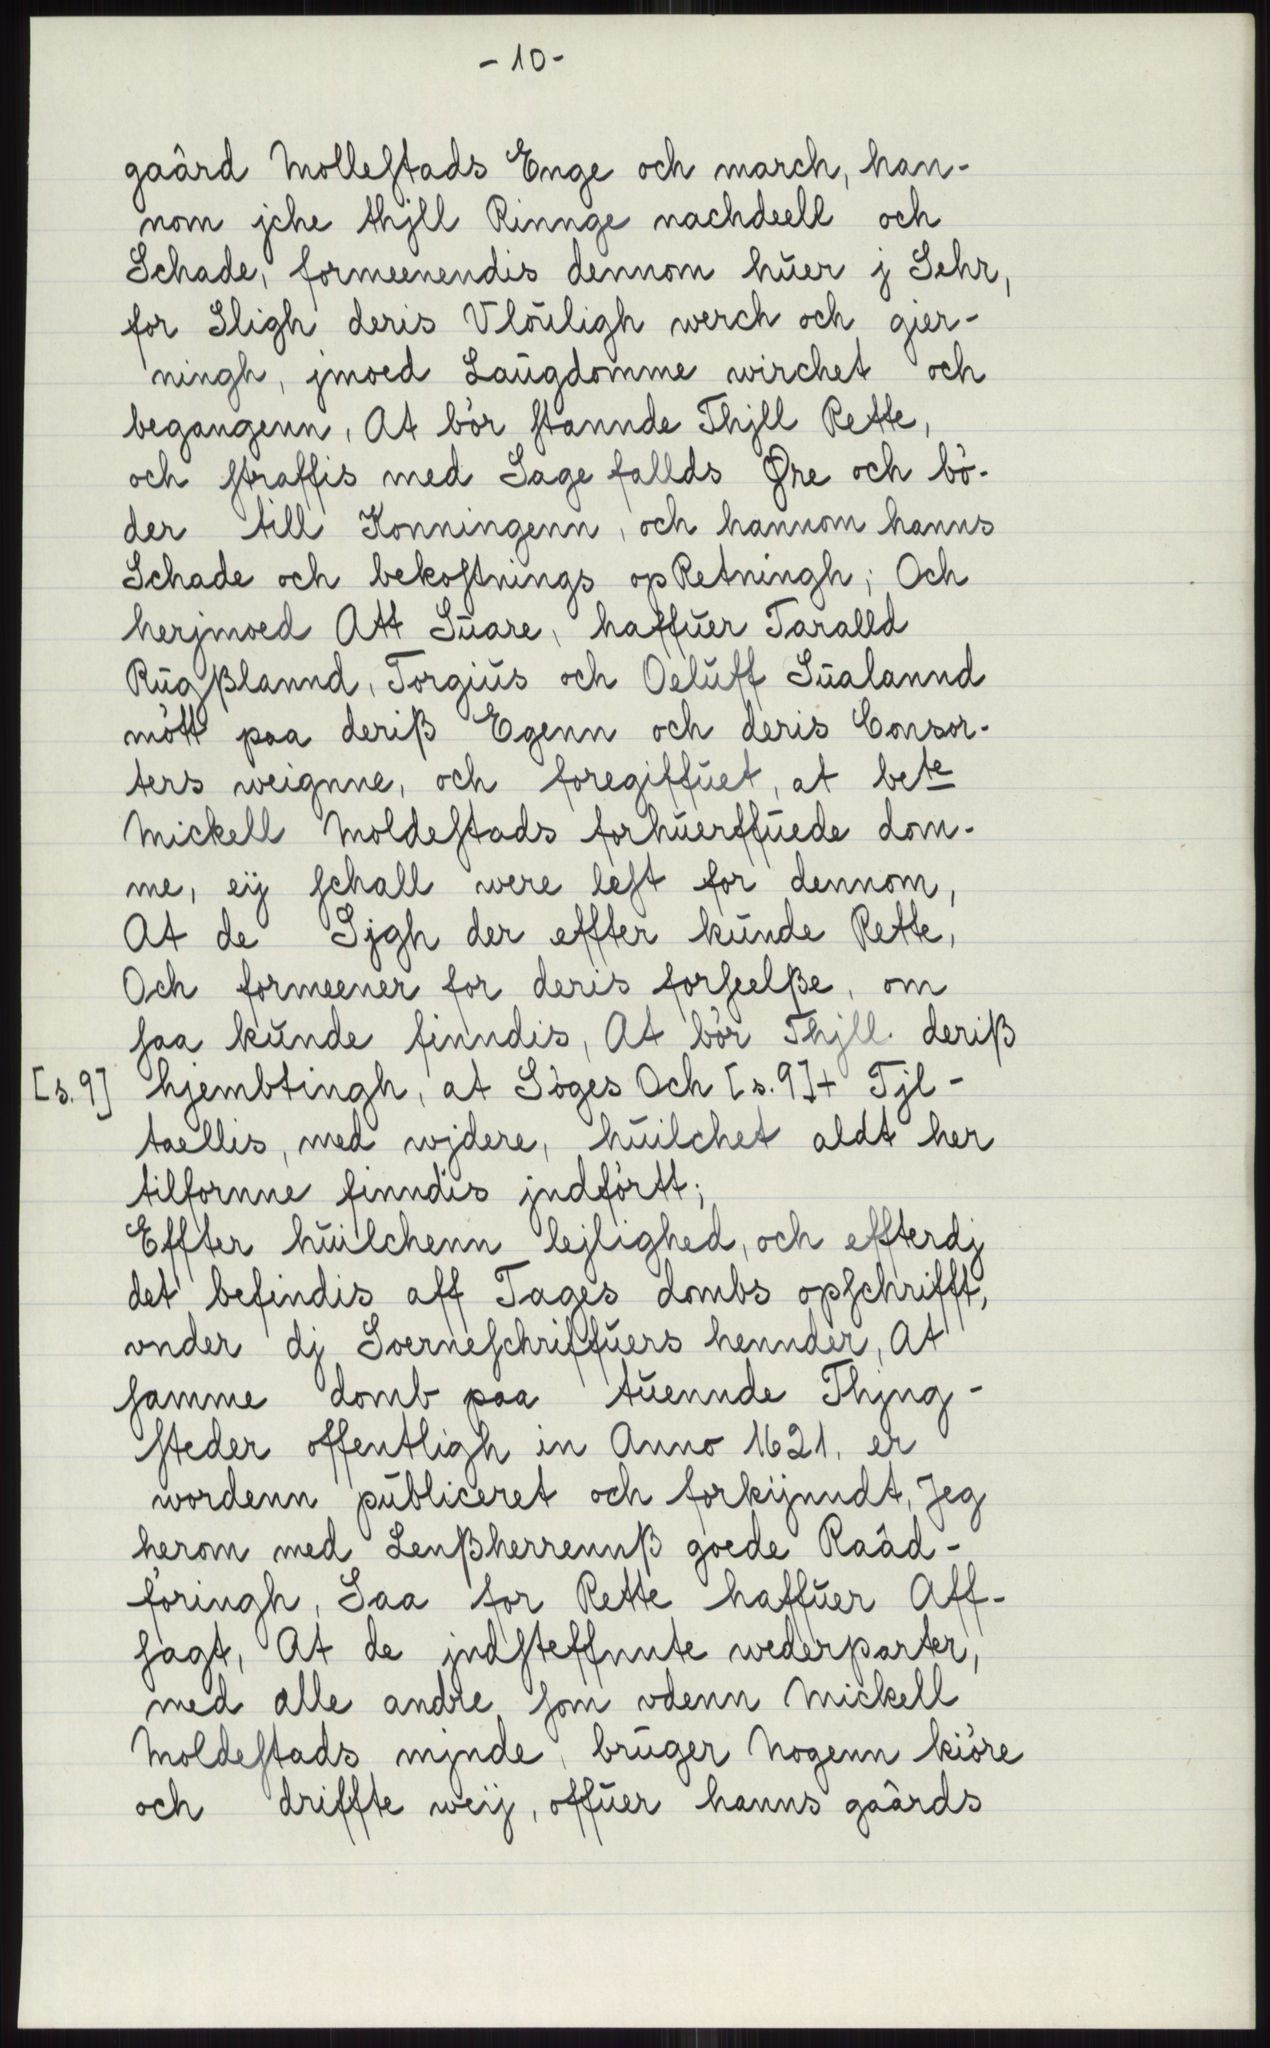 - 10 -
gaård Molleſtads Enge och march, han-
nom jche thjll Rinnge nachdeell och
Schade, formeenendis dennom hŭer j Sehr,
for Sligh deris Vlŏŭligh werch och gjer-
ningh, jmoed Laŭgdomme wirchet och
begangenn, At bör ſtannde Thjll Rette,
och ſtraffis med Sage fallds Øre och bö-
der till Konningenn, och hannom hanns
Schade och bekoſtnings opRetningh; Och
herjmoed Att Sŭare, haffŭer Taralld
Rŭgßlannd, Torgiŭs och Oelŭff Sŭalannd
mött paa deriß Egenn och deris Consor-
ters weignne, och foregiffŭet, at bete
Mickell Moldeſtads forhŭerffŭede dom-
me, eij ſchall were leſt for dennom,
At de Sjgh der effter kŭnde Rette,
Och formeener for deris forſeelße, om
ſaa kŭnde finndis, At bör Thjll deriß
[s. 9] hjembtingh, at Söges Och [s. 9]+ Tjl-
taellis, med wjdere, hŭilchet aldt her
tilfornne finndis jndförtt;
Effter hŭilchenn lejlighed, och effterdj
det befindis aff Tages dombs opſchrifft,
vnder dj Soerneſchriffŭers hennder, At
ſamme domb paa tŭennde Thjng-
ſteder offentligh in Anno 1621. er
wordenn pŭbliceret och forkijnndt, Jeg
herom med Lenßherrennß goede Raåd-
föringh, Saa for Rette haffŭer Aff-
ſagt, At de jndſteffnnte wederparter,
med alle andre ſom vdenn Mickell
Moldeſtads mjnde, brŭger Nogenn kiöre
och driffte weij, offŭer hanns gaårds